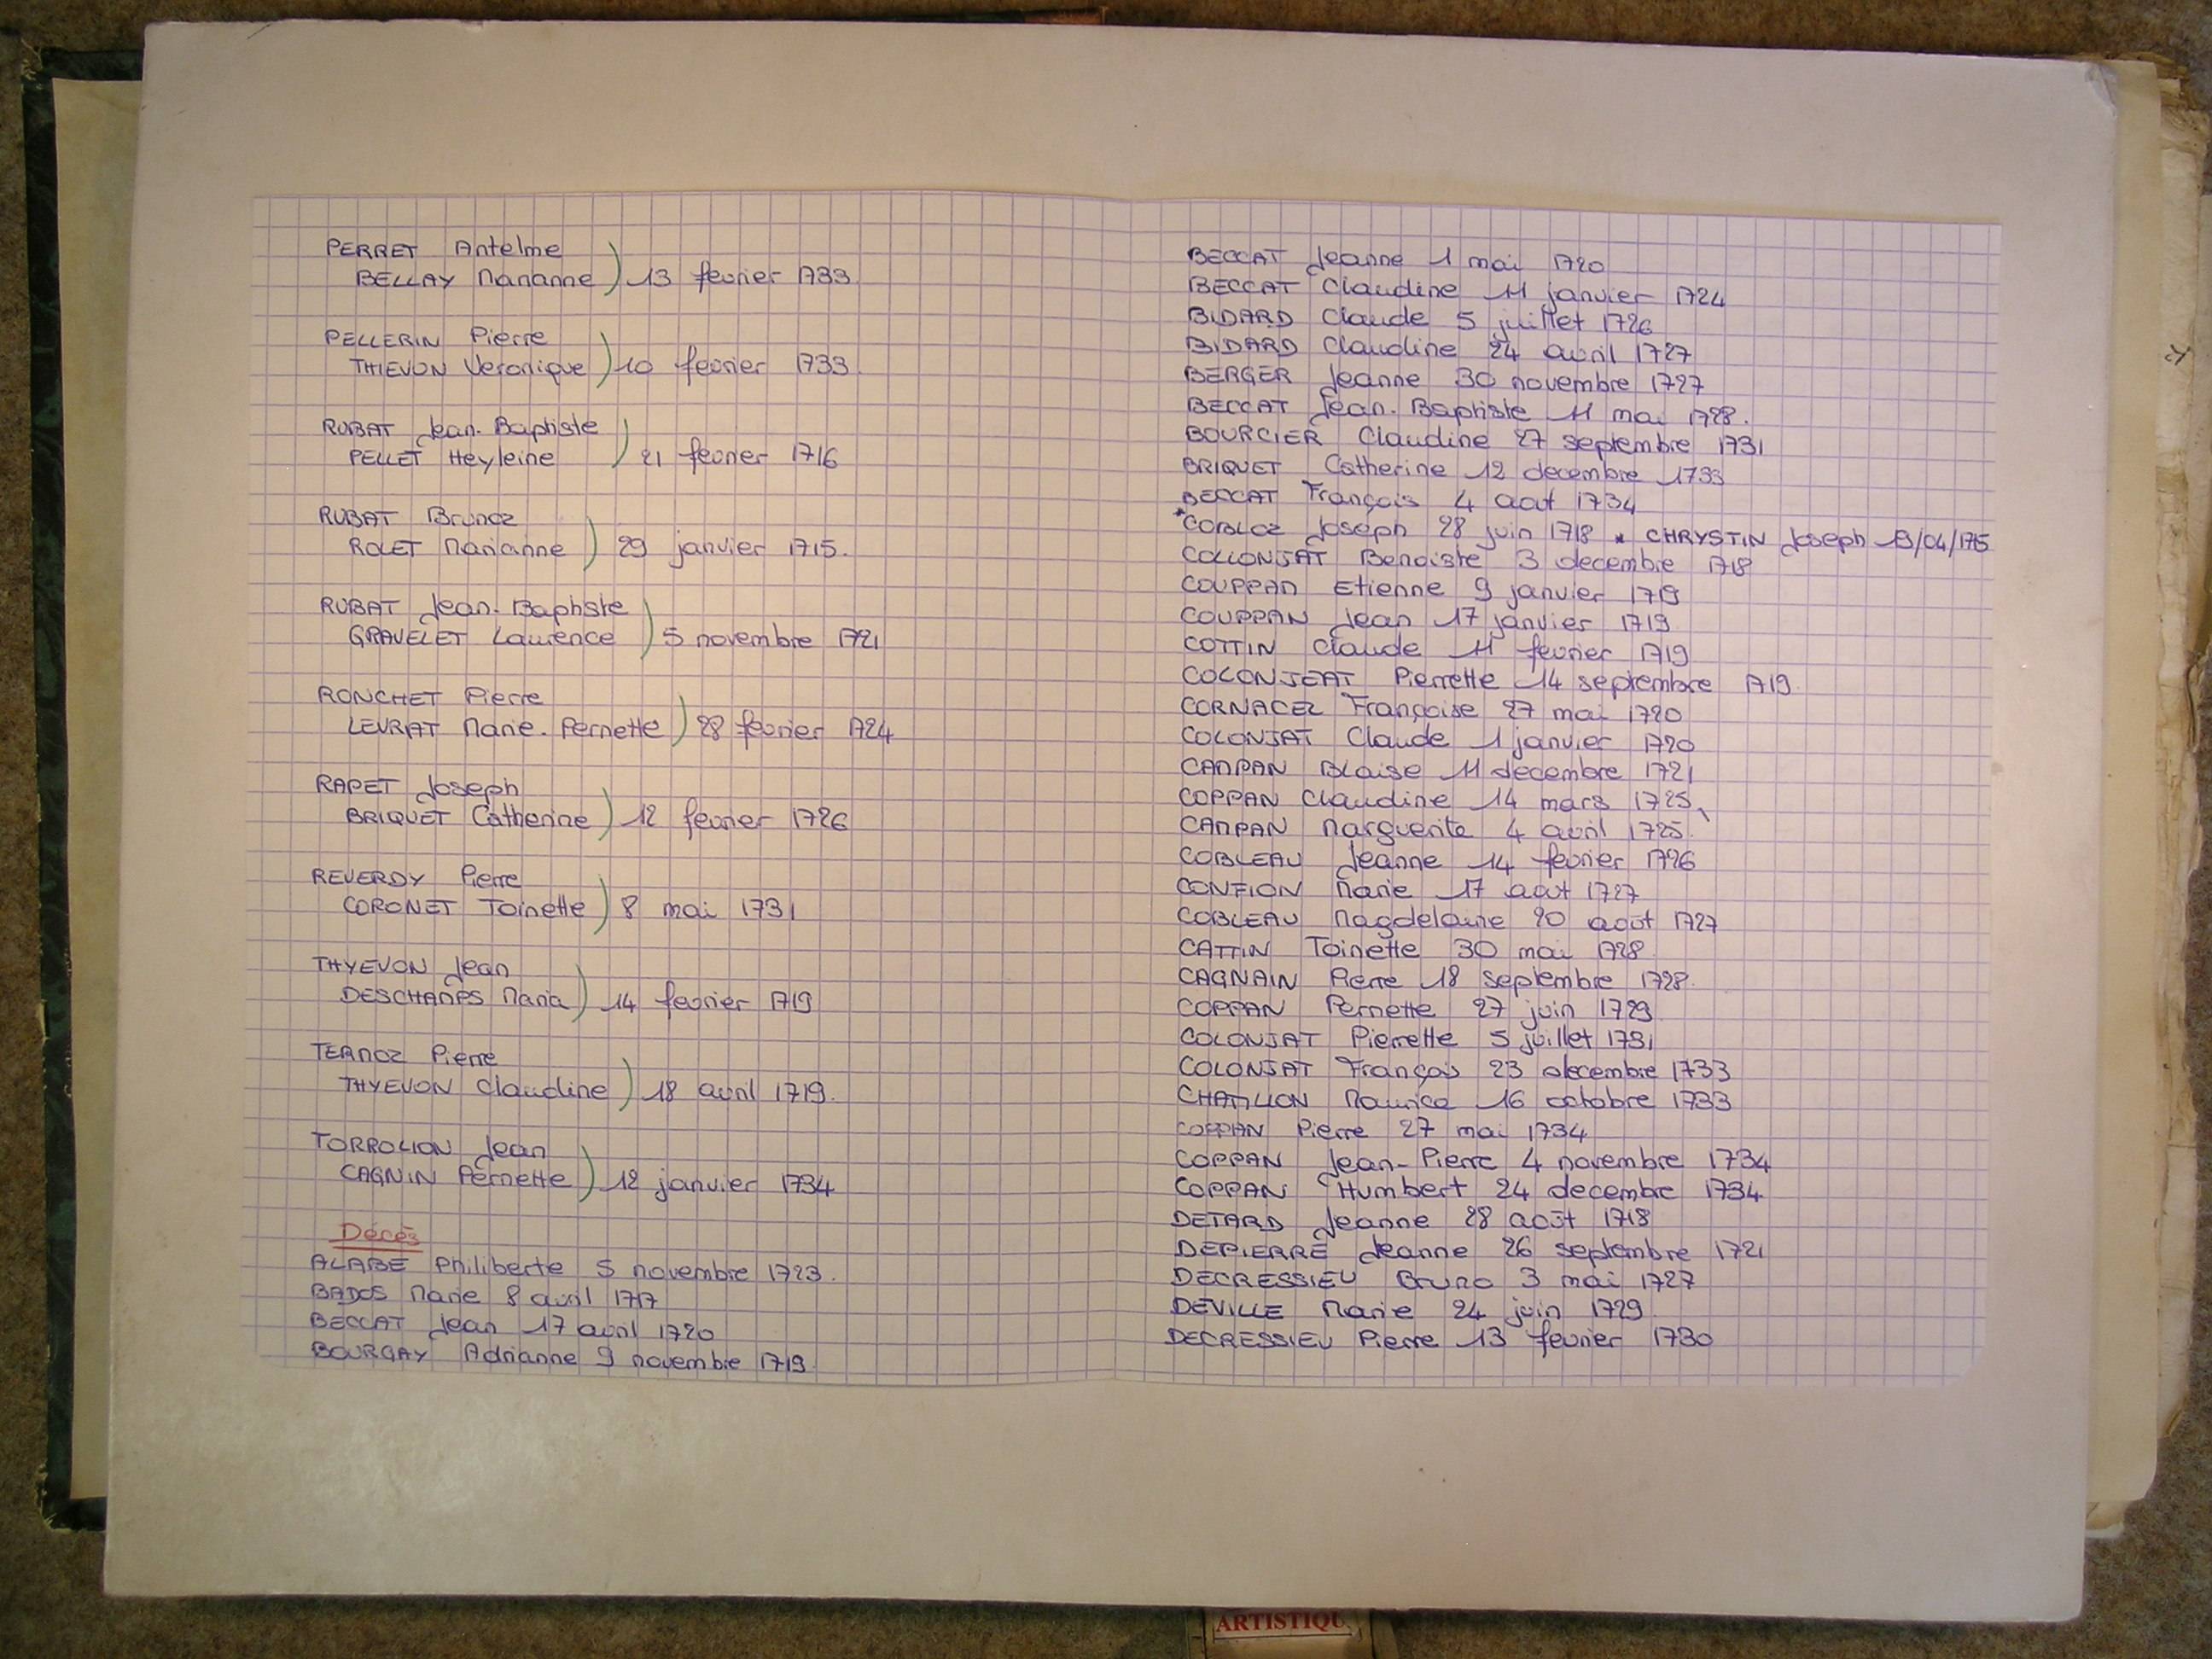 PERRET Antelme
BELLAY Marianne ) 13 fevrier 1733
PELLERIN Pierre
THIEVON Veronique ) 10 fevrier 1733
RUBAT Jean-Baptiste
PELLET Heyleine ) 21 fevrier 1716
RUBAT Brunoz
ROLET Marianne ) 29 janvier 1715.
RUBAT Jean-Baptiste
GRAVELET Laurence ) 5 novembre 1721
RONCHET Pierre
LEVRAT Marie-Pernette ) 28 fevrier 1724
RAPET Joseph
BRIQUET Catherine ) 12 fevrier 1726
REVERDY Pierre
CORONET Toinette ) 8 mai 1731
THYEVON Jean
DESCHAMPS Maria ) 14 fevrier 1719
TERMOZ Pierre
THYEVON Claudine ) 18 avril 1719.
TORROLION Jean
CAGNIN Pernette ) 12 janvier 1734
Décès
ALABE Philiberte 5 novembre 1723.
BADOS Marie 8 avril 1717
BECCAT Jean 17 avril 1720
BOURGAY Adrianne 9 novembre 1719
BECCAT Jeanne 1 mai 1720
BECCAT Claudine 11 janvier 1724
BIDARD Claude 5 juillet 1726
BIDARD Claudine 24 avril 1727
BERGER Jeanne 30 novembre 1727
BECCAT Jean-Baptiste 11 mai 1728.
BOURCIER Claudine 27 septembre 1731
BRIQUET Catherine 12 decembre 1733
BECCAT François 4 aout 1734
*COBLOZ Joseph 28 juin 1718 * CHRYSTIN Joseph 19/04/1715
COLLONJAT Benoiste 3 decembre 1718
COUPPAN Etienne 9 janvier 1719
COUPPAN Jean 17 janvier 1719
COTTIN Claude 11 fevrier 1719
COLONJEAT Pierrette 14 septembre 1719.
CORNACEL Françoise 27 mai 1720
COLONJAT Claude 1 janvier 1720
CAMPAN Blaise 11 decembre 1721
COPPAN Claudine 14 mars 1725
CAMPAN Marguerite 4 avril 1725.
COBLEAU Jeanne 14 fevrier 1726
CONFION Marie 17 aout 1727
COBLEAU Magdelaine 20 août 1727
CATTIN Toinette 30 mai 1728
CAGNAIN Pierre 18 septembre 1728.
COPPAN Pernette 27 juin 1729
COLONJAT Pierrette 5 juillet 1731
COLONJAT François 23 decembre 1733
CHATILLON Maurice 16 octobre 1733
COPPAN Pierre 27 mai 1734
COPPAN Jean-Pierre 4 novembre 1734
COPPAN Humbert 24 decembre 1734
DETARD Jeanne 28 août 1718
DEPIERRE Jeanne 26 septembre 1721
DECRESSIEU Bruno 3 mai 1727
DEVILLE Marie 24 juin 1729
DECRESSIEU Pierre 13 fevrier 1730